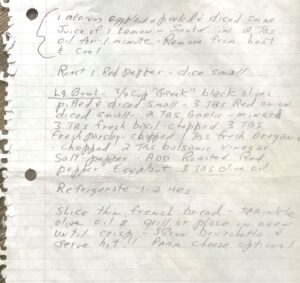 1 medium eggplant - peeled & diced small
Juice of 1 Lemon - Sauté in 2 TBS
oil for 1 minute - Remove from heat
& cool
Roast 1 Red pepper - dice small
Lg Bowl - 3/4 cup "Greek" black olives
pitted & diced small - 3 TBS Red onion
diced small - 2 TBS Garlic - minced
3 TBS fresh basil - chopped 3 TBS
fresh parsley - chopped 1 TBS fresh oregano
chopped 2 TBS balsamic vinegar
Salt pepper - ADD Roasted Red
pepper - Eggplant 3 TBS olive oil
Refrigerate 1-2 HRS
Slice thin french bread - sprinkle
olive oil & grill or place in oven
until crisp - spoon bruschetta &
serve hot!! Parm. cheese optional